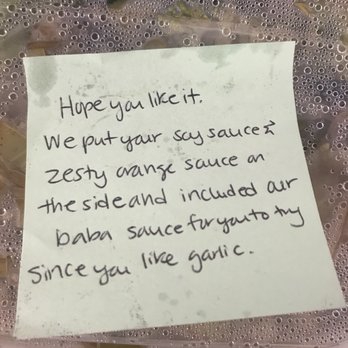 Hope you like it.
We put your soy sauce &
zesty orange sauce on
the side and included our
baba sauce for you to try
since you like garlic.